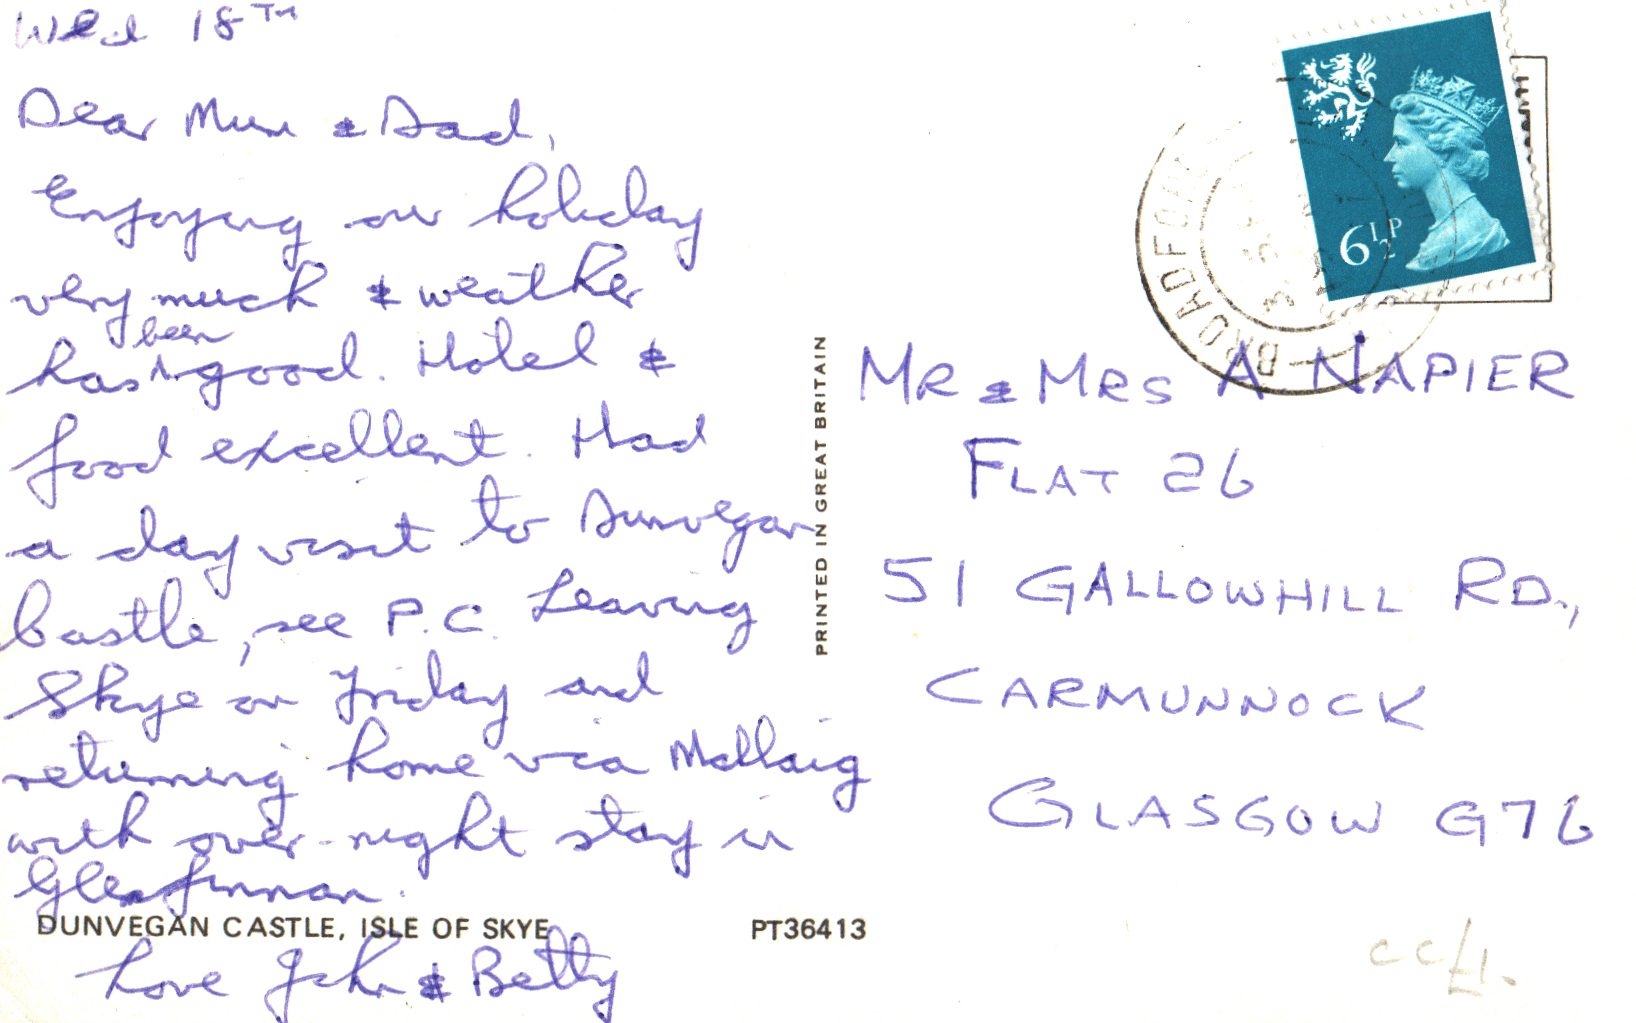 Wed 18TH
Dear Mum & Dad,
Enjoying our holiday
very much & weather
been
has ^ good. Hotel &
food excellent. Had
a day visit to Dunvegan
Castle, see P.C. Leaving
Skye on Friday and
returning home via Mallaig
with over-night stay in
Glenfinnan.
DUNVEGAN CASTLE, ISLE OF SKYE
PT36413
Love John & Betty
PRINTED IN GREAT BRITAIN
6½P
BROADFORD
MR & MRS A NAPIER
FLAT 26
51 GALLOWHILL RD.,
CARMUNNOCK
GLASGOW G76
CC£1.